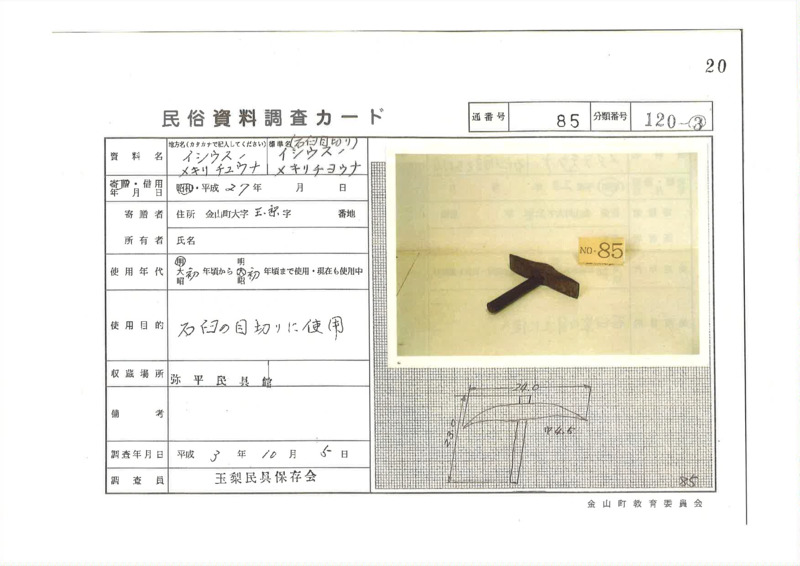 20
民俗資料調査カード
通番号 85 分類番号 120-③
資料名 地方名(カタカナで記入してください) 標準名(石臼目切り)
イシウスノ イシウスノ
メキリチュウナ メキリチョウナ
寄贈・借用年月日 昭和・平成 27年 月 日
寄贈者 住所 金山町大字 玉梨 字 番地
所有者 氏名
使用年代 明大昭 初 年頃から 明大昭 初 年頃まで使用・現在も使用中
使用目的 石臼の目切りに使用
収蔵場所 弥平民具館
備考
調査年月日 平成 3 年 10 月 5 日
調査員 玉梨民具保存会
NO. 85
24.0
29.0
巾4.5
85
金山町教育委員会